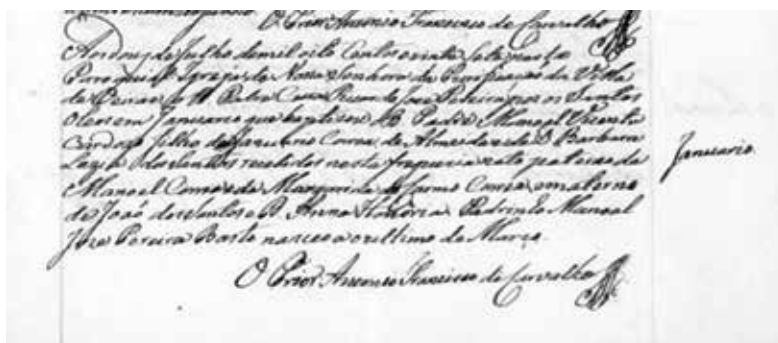 O Prior Antonio Francisco de Carvalho
Aos dous de Julho de mil oito centos e vinte e sete nesta
Paroquial Igreja de Nossa Senhora da Purificação da Villa
de o M. Padre Cura José Pereira dos Santos
oleos em Januario que baptizou o Padre Manoel Vicente
Cardozo filho de Januario Correa de Almeida e de D. Barbara
dos Santos recebidos nesta freguezia neto paterno de
Manoel Correa e de Margarida do Carmo Correa, e materno
de João dos Santos e D. Anna Honoria Padrinho Manoel
Jose Pereira Basto nasceo a o ultimo de Março
Januario
O Prior Antonio Francisco de Carvalho